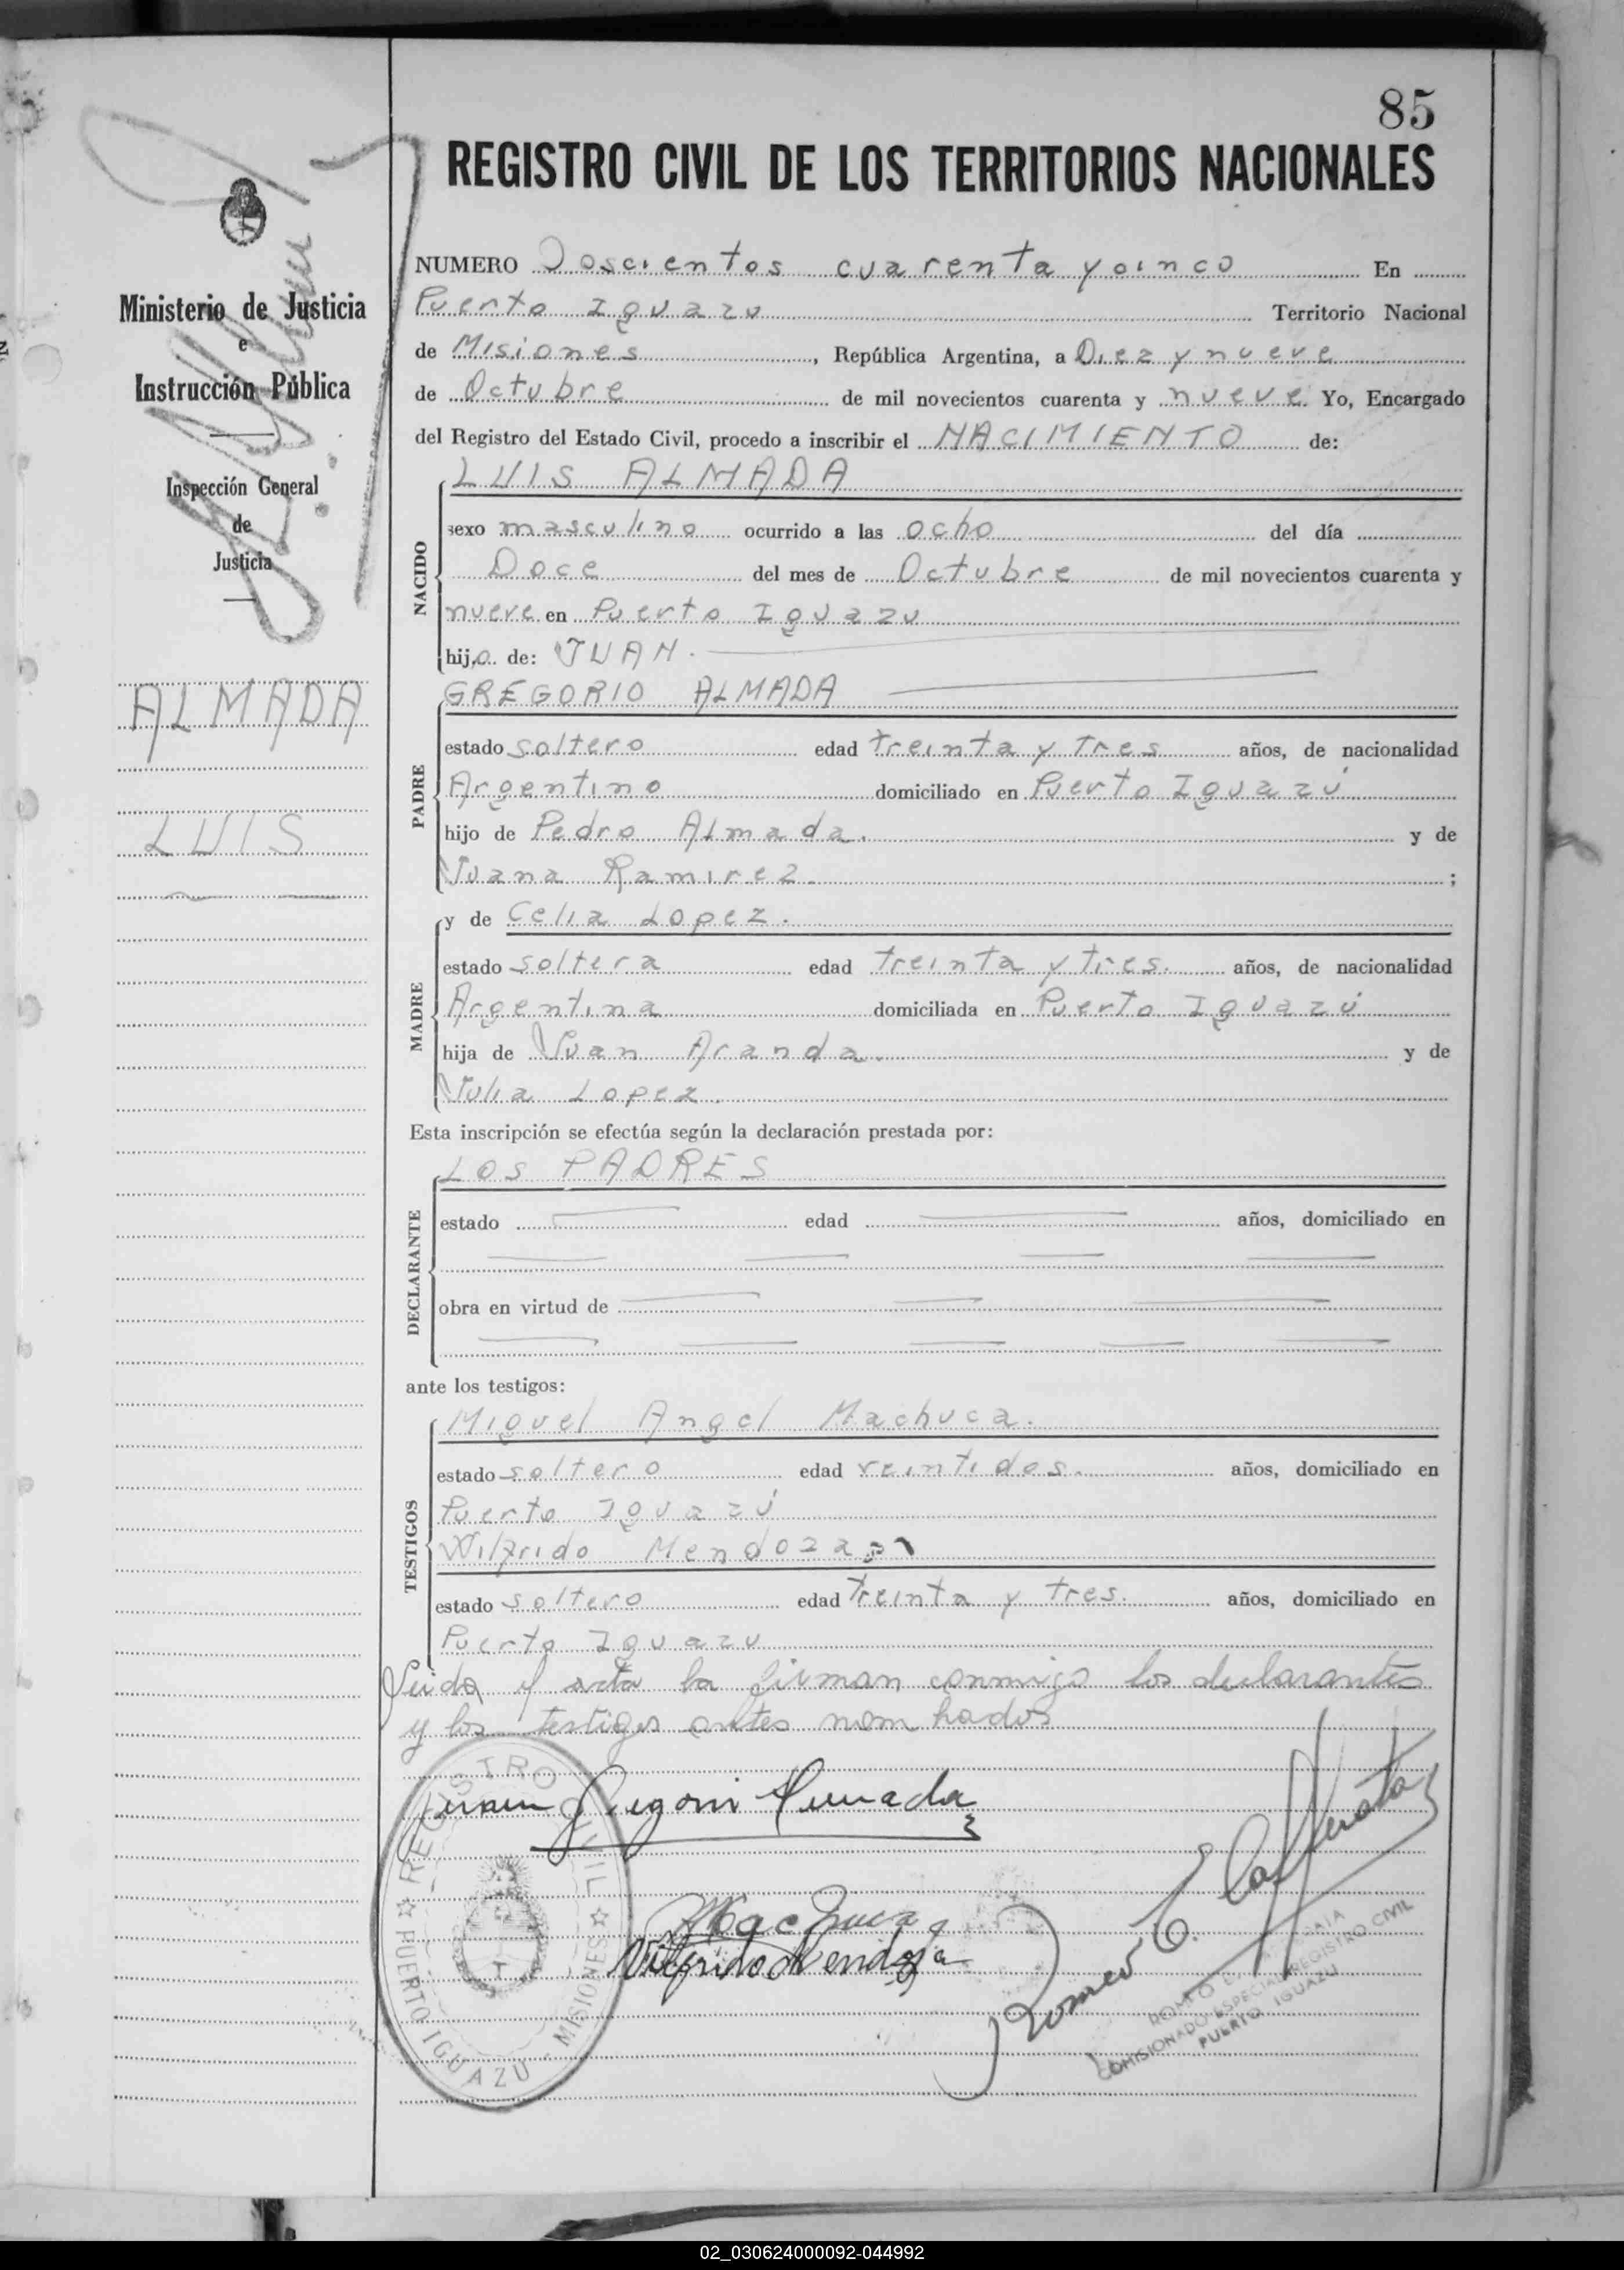 85
REGISTRO CIVIL DE LOS TERRITORIOS NACIONALES
Ministerio de Justicia
e
Instrucción Pública
Inspección General
de
Justicia
ALMADA
LUIS
NUMERO Doscientos cuarenta y cinco En
Puerto Iguazu Territorio Nacional
de Misiones, República Argentina, a Diez y nueve
de Octubre de mil novecientos cuarenta y nueve. Yo, Encargado
del Registro del Estado Civil, procedo a inscribir el NACIMIENTO de:
NACIDO
LUIS ALMADA
sexo masculino ocurrido a las ocho del día
Doce del mes de Octubre de mil novecientos cuarenta y
nueve en Puerto Iguazu
hijo de: JUAN.
PADRE
GREGORIO ALMADA
estado soltero edad treinta y tres años, de nacionalidad
Argentino domiciliado en Puerto Iguazú
hijo de Pedro Almada. y de
Juana Ramirez. ;
MADRE
y de Celia Lopez.
estado soltera edad treinta y tres. años, de nacionalidad
Argentina domiciliada en Puerto Iguazú
hija de Juan Aranda. y de
Julia Lopez.
Esta inscripción se efectúa según la declaración prestada por:
DECLARANTE
LOS PADRES
estado edad años, domiciliado en
obra en virtud de
ante los testigos:
TESTIGOS
Miguel Angel Machuca.
estado soltero edad veintidos. años, domiciliado en
Puerto Iguazú
Wilfrido Mendoza
estado soltero edad treinta y tres. años, domiciliado en
Puerto Iguazu
Leida el acta la firman conmigo los declarantes
y los testigos antes nombrados
REGISTRO CIVIL
PUERTO IGUAZU - MISIONES
Juan Gregorio Almada
Machuca
Wilfrido Mendoza
Romeo E.
ROMEO E.
COMISIONADO ESPECIAL REGISTRO CIVIL
PUERTO IGUAZU
02_030624000092-044992